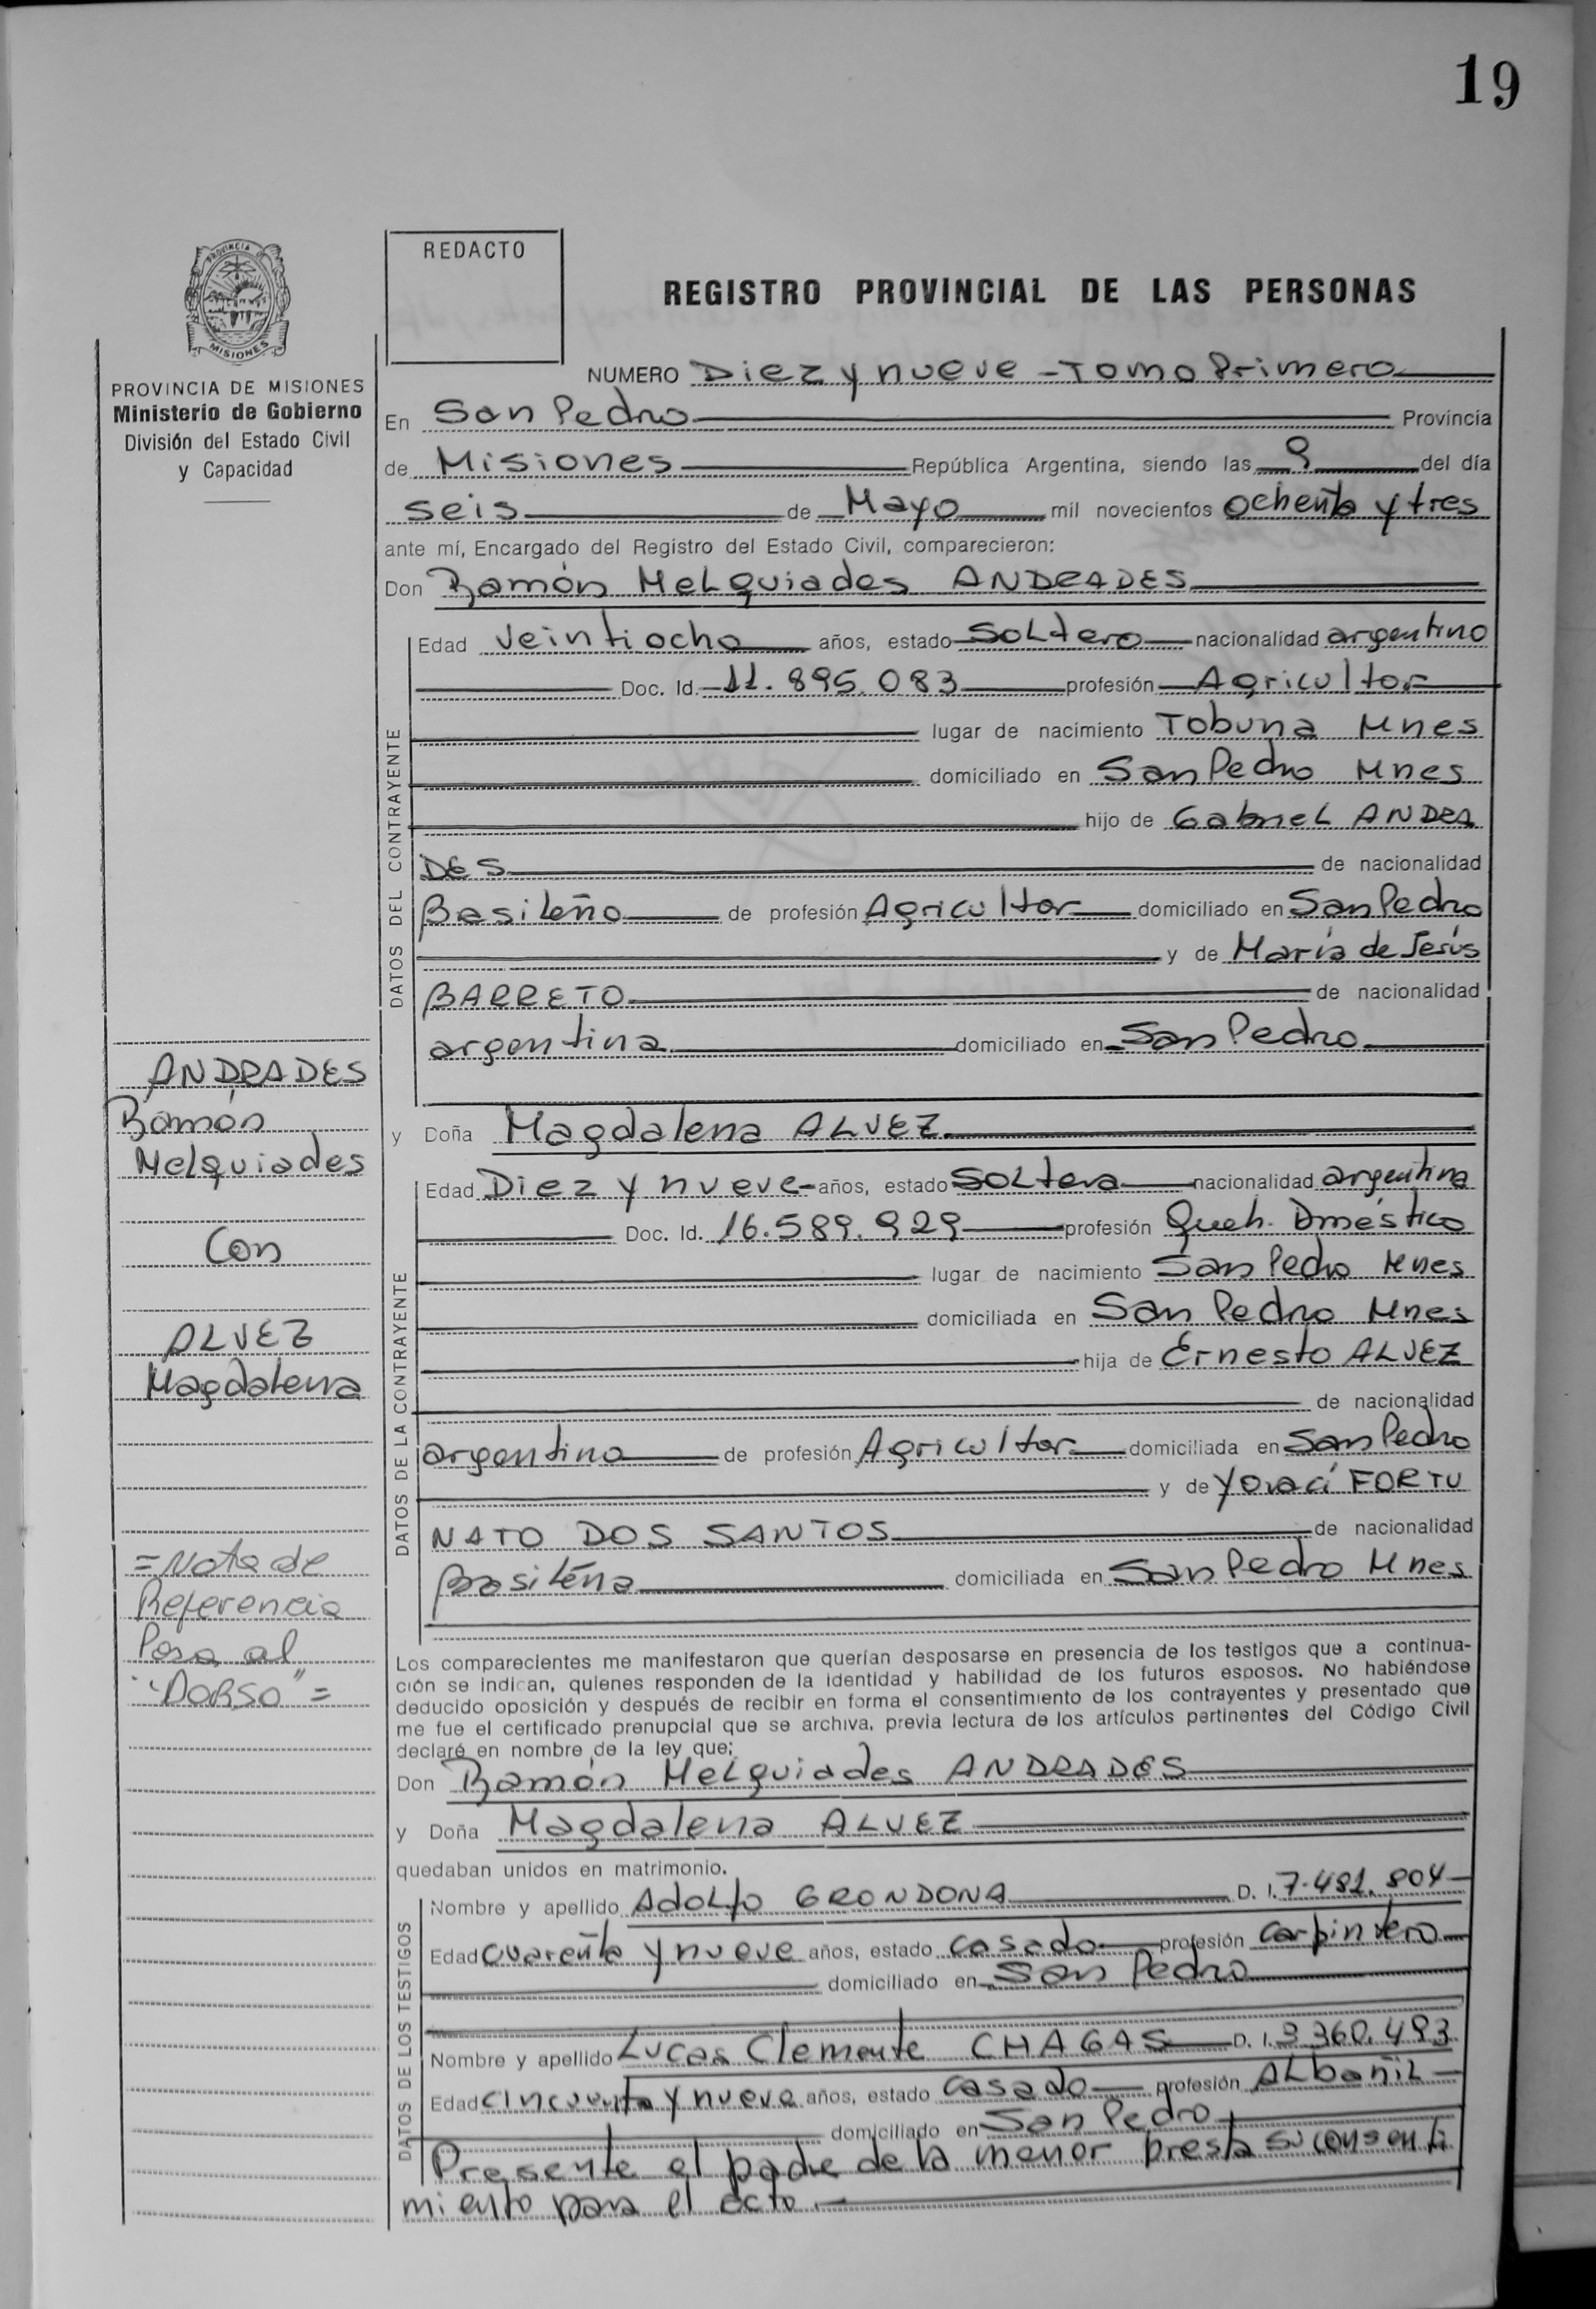 19
PROVINCIA
MISIONES
PROVINCIA DE MISIONES
Ministerio de Gobierno
División del Estado Civil
y Capacidad
REDACTO
REGISTRO PROVINCIAL DE LAS PERSONAS
NUMERO Diez y nueve - Tomo Primero
En San Pedro Provincia
de Misiones República Argentina, siendo las 9 del día
seis de Mayo mil novecientos ochenta y tres
ante mí, Encargado del Registro del Estado Civil, comparecieron:
Don Ramón Melquiades ANDRADES
DATOS DEL CONTRAYENTE
Edad veintiocho años, estado soltero nacionalidad argentino
Doc. Id. 11.895.083 profesión Agricultor
lugar de nacimiento Tobuna Mnes
domiciliado en San Pedro Mnes
hijo de Gabriel ANDRA
DES de nacionalidad
Basileño de profesión Agricultor domiciliado en San Pedro
y de María de Jesús
BARRETO de nacionalidad
argentina domiciliado en San Pedro
y Doña Magdalena ALVEZ
DATOS DE LA CONTRAYENTE
Edad Diez y nueve años, estado soltera nacionalidad argentina
Doc. Id. 16.589.929 profesión Queh. Dméstico
lugar de nacimiento San Pedro Mnes
domiciliada en San Pedro Mnes
hija de Ernesto ALVEZ
de nacionalidad
argentino de profesión Agricultor domiciliada en San Pedro
y de Yoraci FORTU
NATO DOS SANTOS de nacionalidad
Brasiléna domiciliada en San Pedro Mnes
ANDRADES
Ramón
Melquiades
Con
ALVEZ
Magdalena
=Nota de
Referencia
Pasa al
"DORSO"=
Los comparecientes me manifestaron que querían desposarse en presencia de los testigos que a continua-
ción se indican, quienes responden de la identidad y habilidad de los futuros esposos. No habiéndose
deducido oposición y después de recibir en forma el consentimiento de los contrayentes y presentado que
me fue el certificado prenupcial que se archiva, previa lectura de los artículos pertinentes del Código Civil
declaré en nombre de la ley que:
Don Ramón Melquiades ANDRADES
y Doña Magdalena ALVEZ
quedaban unidos en matrimonio.
DATOS DE LOS TESTIGOS
Nombre y apellido Adolfo GRONDONA D. I. 7.481.804
Edad cuarenta y nueve años, estado casado profesión carpintero
domiciliado en San Pedro
Nombre y apellido Lucas Clemente CHAGAS D. I. 3.360.483
Edad cincuenta y nueve años, estado casado profesión Albañil
domiciliado en San Pedro
Presente el padre de la menor presta su consenti
miento para el acto.